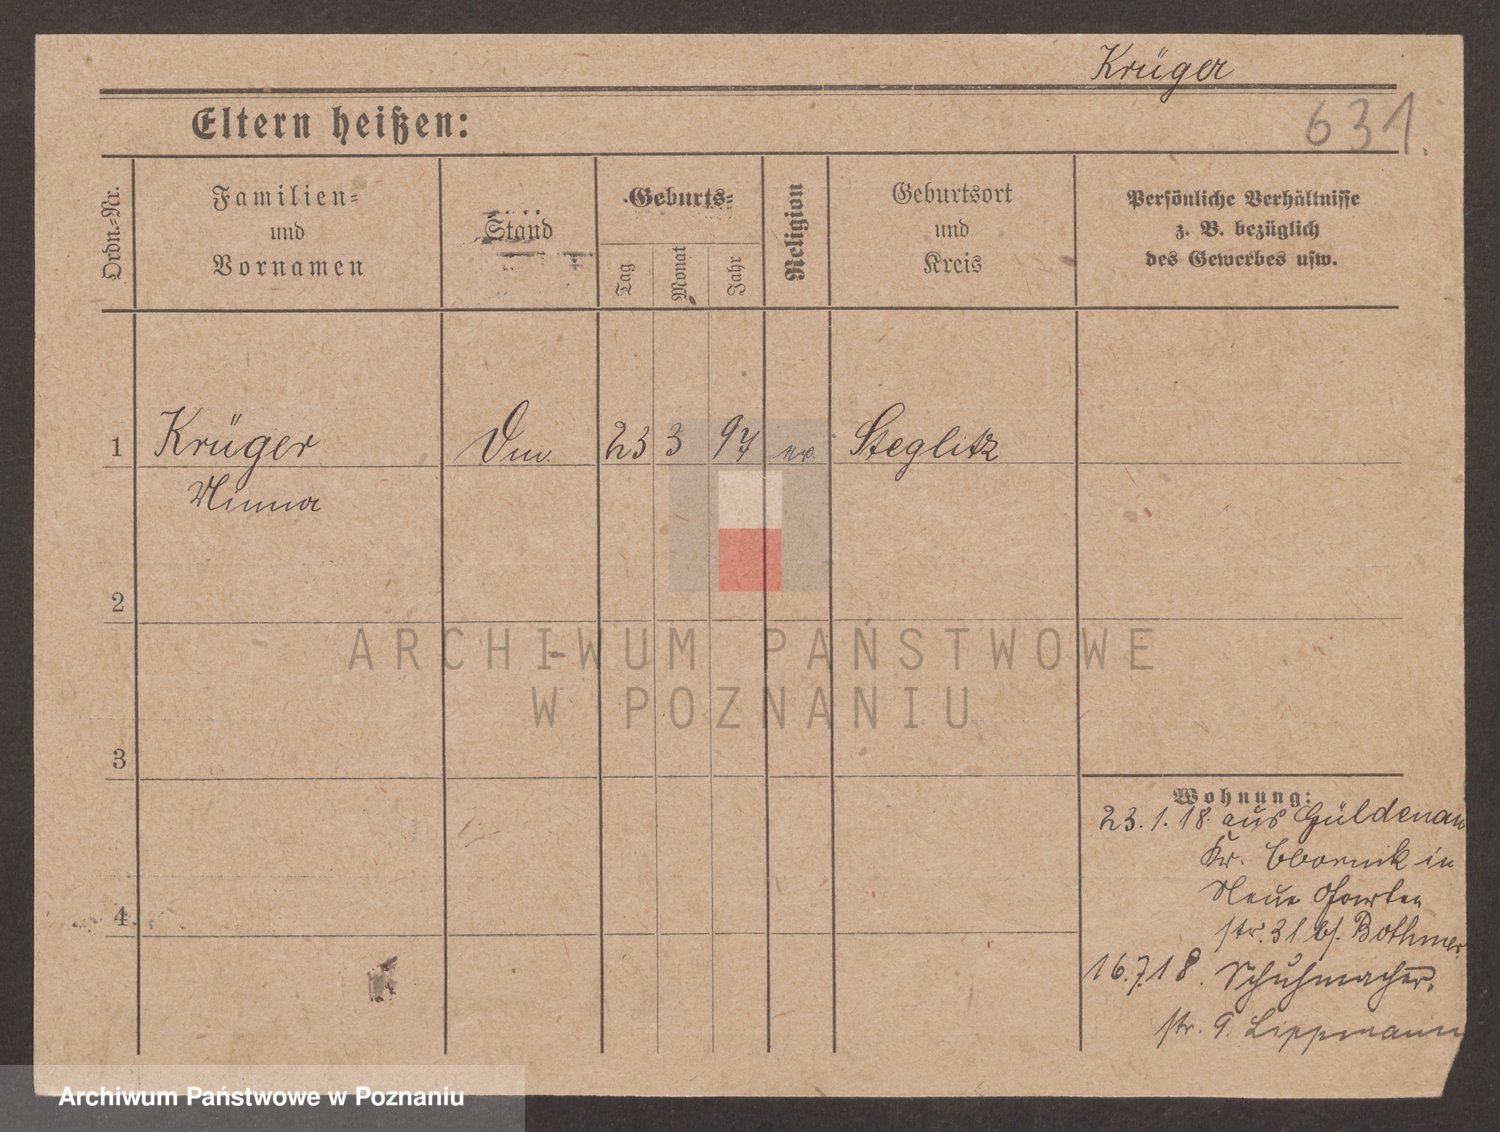 Krüger
Eltern heißen:
631.
Ordn.=Nr.
Familien=
und
Vornamen
Stand
Geburts=
Tag
Monat
Jahr
Religion
Geburtsort
und
Kreis
Persönliche Verhältnisse
z. B. bezüglich
des Gewerbes usw.
1 Krüger 23 3 97 ev. Steglitz
Minna
2
3
4
Wohnung:
23.1.18. aus Güldenau
Kr. Obornik in
Neue Garten
str. 31 bf. Bothmer
16.7.18. Schuhmacher.
str. 9. Lippmann
ARCHIWUM PAŃSTWOWE
W POZNANIU
Archiwum Państwowe w Poznaniu